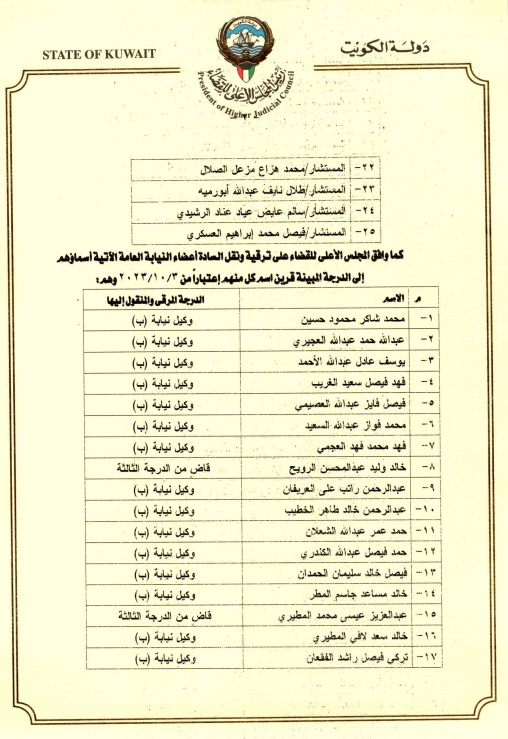 STATE OF KUWAIT
دولة الكويت
رئيس المجلس الأعلى للقضاء
President of Higher Judicial Council
٢٢- المستشار/محمد هزاع مزعل الصلال
٢٣- المستشار/طلال نايف عبدالله أبورميه
٢٤- المستشار/سالم عايض عياد عناد الرشيدي
٢٥- المستشار/فيصل محمد إبراهيم العسكري
كما وافق المجلس الأعلى للقضاء على ترقية ونقل السادة أعضاء النيابة العامة الآتية أسماؤهم
إلى الدرجة المبينة قرين اسم كل منهم إعتباراً من ٢٠٢٣/١٠/٣ وهم:
م الاسم الدرجة المرقى والمنقول إليها
١- محمد شاكر محمود حسين وكيل نيابة (ب)
٢- عبدالله حمد عبدالله العجيري وكيل نيابة (ب)
٣- يوسف عادل عبدالله الأحمد وكيل نيابة (ب)
٤- فهد فيصل سعيد الغريب وكيل نيابة (ب)
٥- فيصل فايز عبدالله العصيمي وكيل نيابة (ب)
٦- محمد فواز عبدالله السعيد وكيل نيابة (ب)
٧- فهد محمد فهد العجمي وكيل نيابة (ب)
٨- خالد وليد عبدالمحسن الرويح قاض من الدرجة الثالثة
٩- عبدالرحمن راتب على العريفان وكيل نيابة (ب)
١٠- عبدالرحمن خالد طاهر الخطيب وكيل نيابة (ب)
١١- حمد عمر عبدالله الشعلان وكيل نيابة (ب)
١٢- حمد فيصل عبدالله الكندري وكيل نيابة (ب)
١٣- فيصل خالد سليمان الحمدان وكيل نيابة (ب)
١٤- خالد مساعد جاسم المطر وكيل نيابة (ب)
١٥- عبدالعزيز عيسى محمد المطيري قاض من الدرجة الثالثة
١٦- خالد سعد لافي المطيري وكيل نيابة (ب)
١٧- تركي فيصل راشد الفقعان وكيل نيابة (ب)